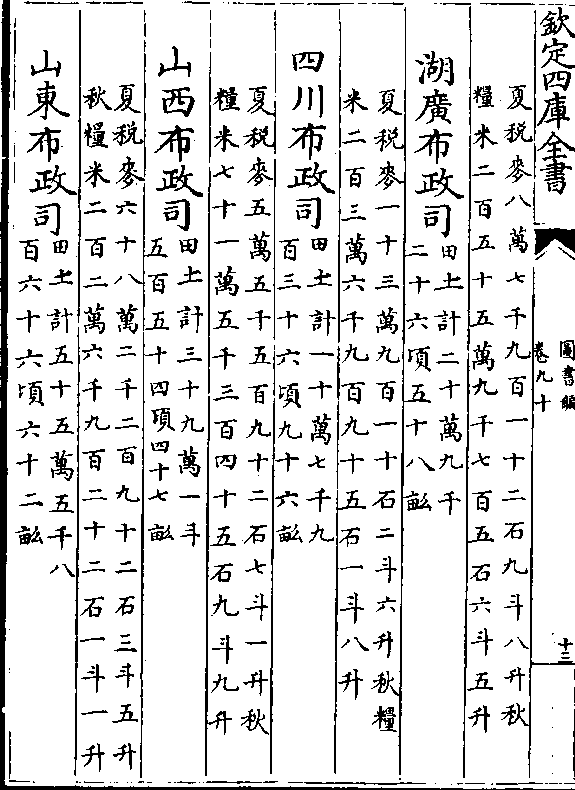 欽定四庫全書
圖書編
卷九十
十三
夏税麥八萬七千九百一十二石九斗八升秋
糧米二百五十五萬九千七百五石六斗五升
湖廣布政司
田土計二十萬九千
二十六頃五十八畝
夏税麥一十三萬九百一十石二斗六升秋糧
米二百三萬六千九百九十五石一斗八升
四川布政司
田土計一十萬七千九
百三十六頃九十六畝
夏税麥五萬五千五百九十二石七斗一升秋
糧米七十一萬五千三百四十五石九斗九升
山西布政司
田土計三十九萬一斗
五百五十四頃四十七畝
夏税麥六十八萬二千二百九十二石三斗五升
秋糧米二百二萬六千九百二十二石一斗一升
山東布政司
田土計五十五萬五千八
百六十六頃六十二畝